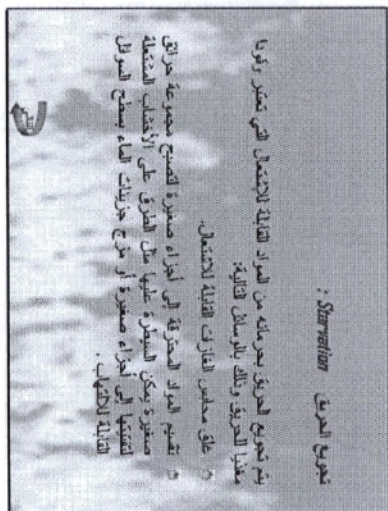 تجويع الحريق Starvation :
يتم تجويع الحريق بحرمانه من المواد القابلة للاشتعال التي تعتبر وقودا
مغذيا للحريق وذلك بالوسائل التالية:
غلق محابس الغازات القابلة للاشتعال.
تقسيم المواد المحترقة إلى أجزاء صغيرة لتصبح مجموعة حرائق
صغيرة يمكن السيطرة عليها مثل الطرق على الأخشاب المشتعلة
لتفتيتها إلى أجزاء صغيرة أو مزج جزيئات الماء بسطح السوائل
القابلة للالتهاب .